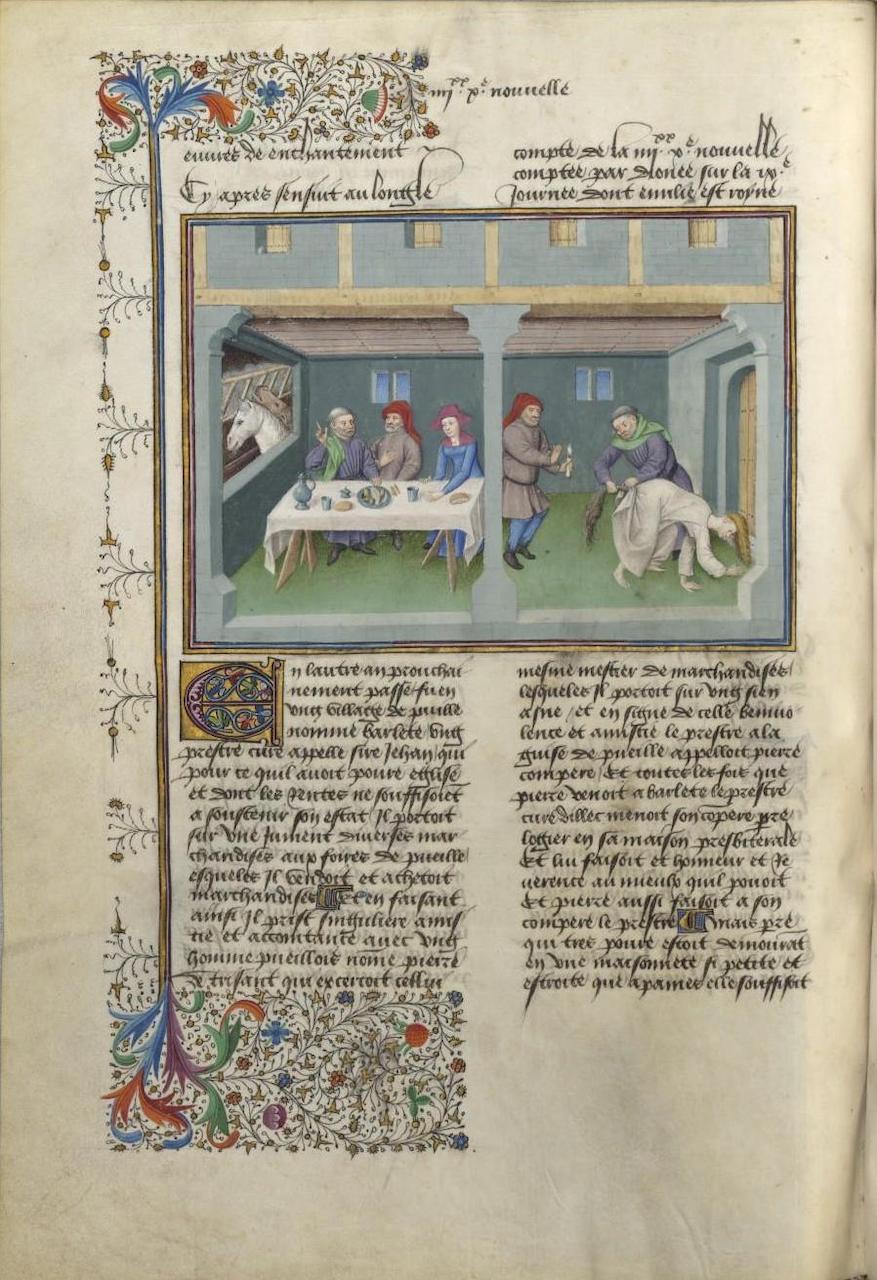 iiii xx xe nouuelle
euures de enchantement
Cy apres sensuit au long le
compte de la iiii xx xe nouuelle
comptee par dionee sur la ixe
Journee dont emilie est royne
En lautre an prouchai
nement passe fu en
vng village de pueille
nomme barlete vng
prestre cure appelle sire Jehan qui
pour ce quil auoit poure eglise
et dont les Rentes ne souffisoiet
a soustenir son estat Il portoit
sur vne Jument diuerses mar
chandises aux foires de pueille
esqueles Il vendoit et achetoit
marchandises Et en faisant
ainsi Il prist singuliere amis
tie et accointance auec vng
homme pueillois nome pierre
de trisant qui excercoit cellui
mesme mestier de marchandises
lesqueles Il portoit sur vng sien
asne / et en signe de celle beniuo
lence et amistie le prestre a la
guise de pueille appelloit pierre
compere / Et toutes les fois que
pierre venoit a barlete le prestre
cure dillec menoit son copere pre
logier en sa maison presbiterale
Et lui faisoit et honneur et Re
uerence au mieulx quil pouoit
Et pierre aussi faisoit a son
compere le prestre Mais pre
qui tres poure estoit demourat
en vne maisonnete si petite et
estroite que a paines elle souffisoit